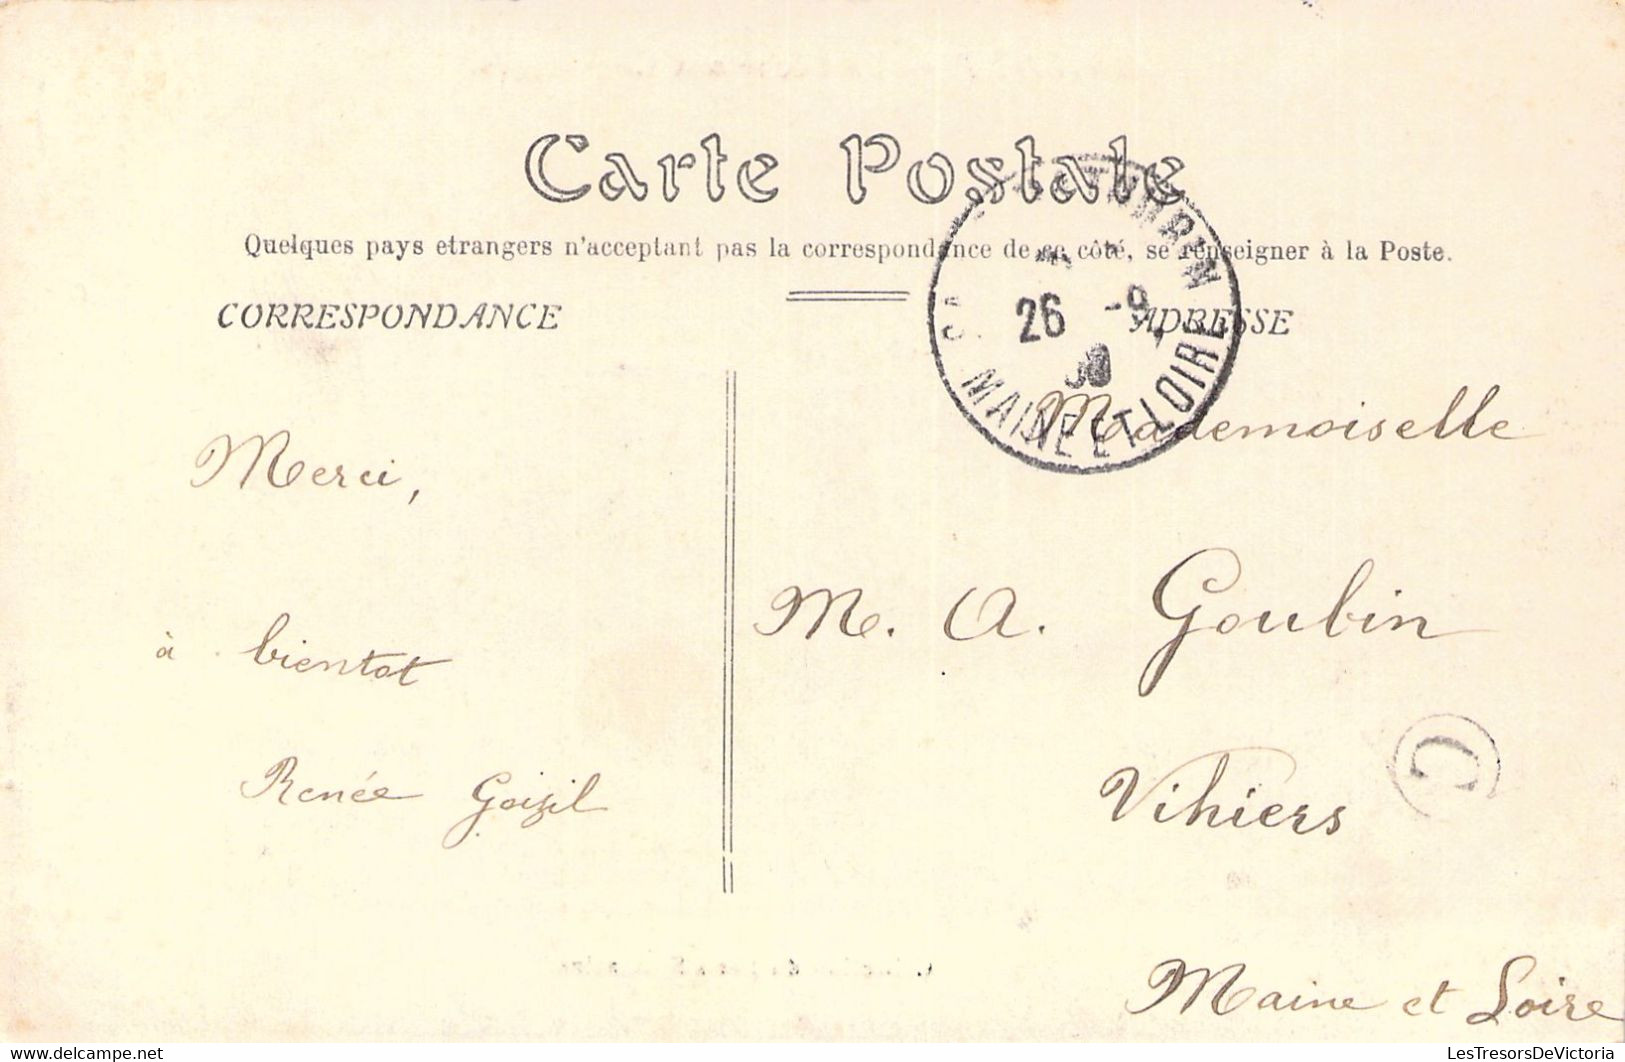 Carte Postale
Quelques pays etrangers n'acceptant pas la correspondance de ce côté, se renseigner à la Poste.
CORRESPONDANCE
ADRESSE
26 -9
MAINE ET LOIRE
Merci,
à bientot
Renée Goizil
Mademoiselle
M. A. Goubin
Vihiers
Maine et Loire
C
LesTresorsDeVictoria